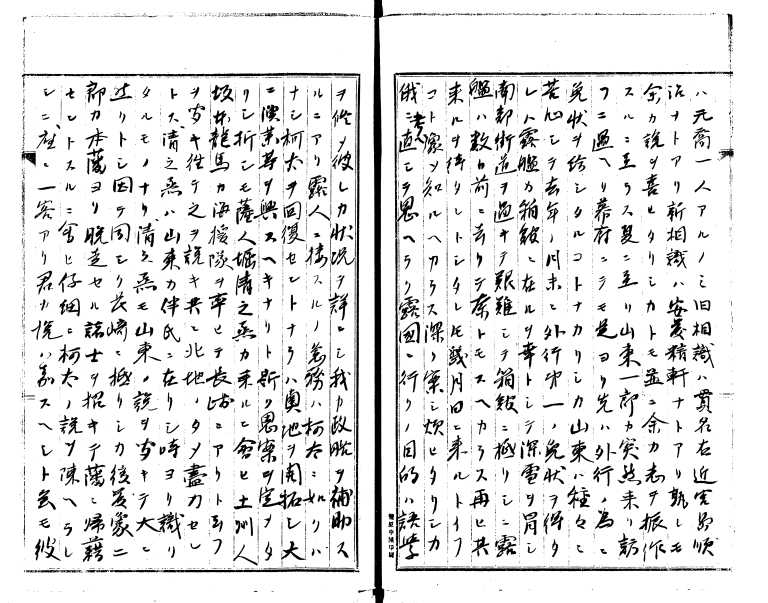 ハ元喬一人アルノミ旧相識ハ貫名右近宍戸順
治ナトアリ新相識ハ安養精軒ナトアリ孰レモ
余カ説ヲ喜ヒタリシカトモ並ニ余カ志ヲ振作
スルニ至ラス夏ニ至リ山東一郎カ突然来リ訪
フニ遇ヘリ幕府ニテモ是ヨリ先ハ外行ノ為ニ
免状ヲ給シタルコトナカリシカ山東ハ種々ト
苦心シテ去年ノ月末ニ外行第一ノ免状ヲ得タ
レハ露艦カ箱館ニ在ルヲ幸トシテ深雪ヲ冒シ
南部街道ヲ過キテ艱難シテ箱館ニ極リシニ露
艦ハ数日前ニ去リテ奈トモスヘカラス再ヒ其
来ルヲ待タントシタレモ幾月日ニ来ルトイフ
コト家ヲ知ルヘカラス深ク案シ煩ヒタリシカ
俄ニ考ヘ直シテ思ヘラク露国ニ行クノ目的ハ語学
ヲ修メ彼レカ状況ヲ詳ニシ我カ政略ヲ補助ス
ルニアリ露人ニ接スルノ急務ハ柯太ニ如クハ
ナシ柯太ヲ回復セントナラハ奥地ヲ開拓シ大
ニ漁業等ヲ興スヘキナリト斯ク思案ヲ定メタ
リシ折シモ薩人堀清之丞カ来ルニ會ヒ土州人
坂本龍馬カ海援隊ヲ率ヒテ長崎ニアリト云フ
ヲ聞キ往テ之ヲ説キ共ニ北地ノタメ盡力セン
トス清之丞ハ山東カ伴氏ニ在リシ時ヨリ識リ
タルモノナリ清之丞モ山東ノ説ヲ聞キテ大ニ
辻リトシ因テ同シク長崎ニ極リシカ後友家二
郎カ本藩ヨリ脱走セル諸士ヲ招キテ藩ニ帰籍
セントスルニ會ヒ仔細ニ柯太ノ説ヲ陳ヘラレ
シニ座ニ一客アリ君カ説ハ嘉スヘシト云モ彼